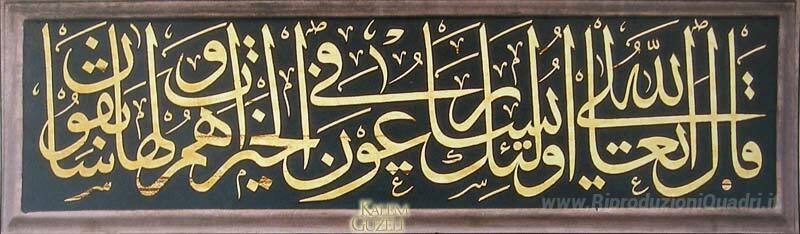 قال الله تعالى اولئك يسارعون في الخيرات وهم لها سابقون
KALEM
GÜZELİ
www.RiproduzioniQuadri.it